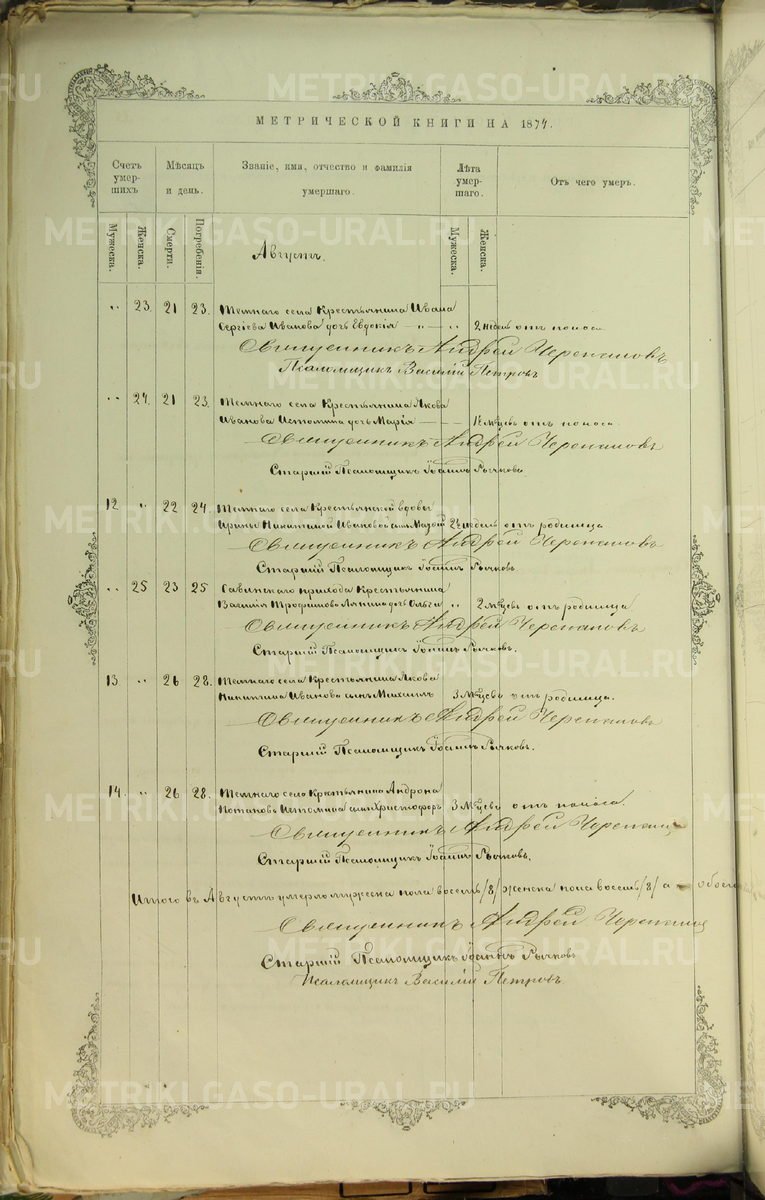 МЕТРИЧЕСКОЙ КНИГИ НА 1874.
Счетъ умер-шихъ
Мѣсяцъ и день.
Званіе, имя, отчество и фамилія умершаго.
Лѣта умер-шаго.
Отъ чего умеръ.
Мужеска.
Женска.
Смерти.
Погребенія.
Мужеска.
Женска.
Августъ.
„ 23. 21 23. Темнаго села Крестьянина Ивана
Сергіева Иванова дочь Евдокія — „ — „ 2 недѣл. отъ поноса
Священникъ Андрей Черепановъ
Псаломщикъ Василій Петровъ
„ 24. 21 23. Темнаго села Крестьянина Якова
Иванова Истомина дочь Марія отъ поноса.
Священникъ Андрей Черепановъ
Старшій Псаломщикъ Іоаннъ Рычковъ
12 „ 22 24. Темнаго села Крестьянской вдовы
Ирины Никитиной Ивановой сынъ отъ родимца
Священникъ Андрей Черепановъ
Старшій Псаломщикъ Іоаннъ Рычковъ
„ 25 23 25 Савинскаго прихода Крестьянина
Василія Трофимова дочь Ольга „ 2 Мѣсяцевъ отъ родимца.
Священникъ Андрей Черепановъ
Старшій Псаломщикъ Іоаннъ Рычковъ.
13. „ 26 28. Темнаго села Крестьянина Якова
Никитина Иванова сынъ 3 Мѣсяцевъ отъ родимца.
Священникъ Андрей Черепановъ
Старшій Псаломщикъ Іоаннъ Рычковъ.
14. „ 26 28. Темнаго села Крстьянина Андрона
Потапова Истомина сынъ Христофоръ 3 Мѣсяцевъ отъ поноса.
Священникъ Андрей Черепанов
Старшій Псаломщикъ Іоаннъ Рычковъ.
Итого въ Августѣ умерло мужеска пола восемь /8/ женска пола восемь /8/ а обоего
Священникъ Андрей Черепанов
Старшій Псаломщикъ Іоаннъ Рычковъ
Псаломщикъ Василій Петровъ
METRIKI.GASO-URAL.RU